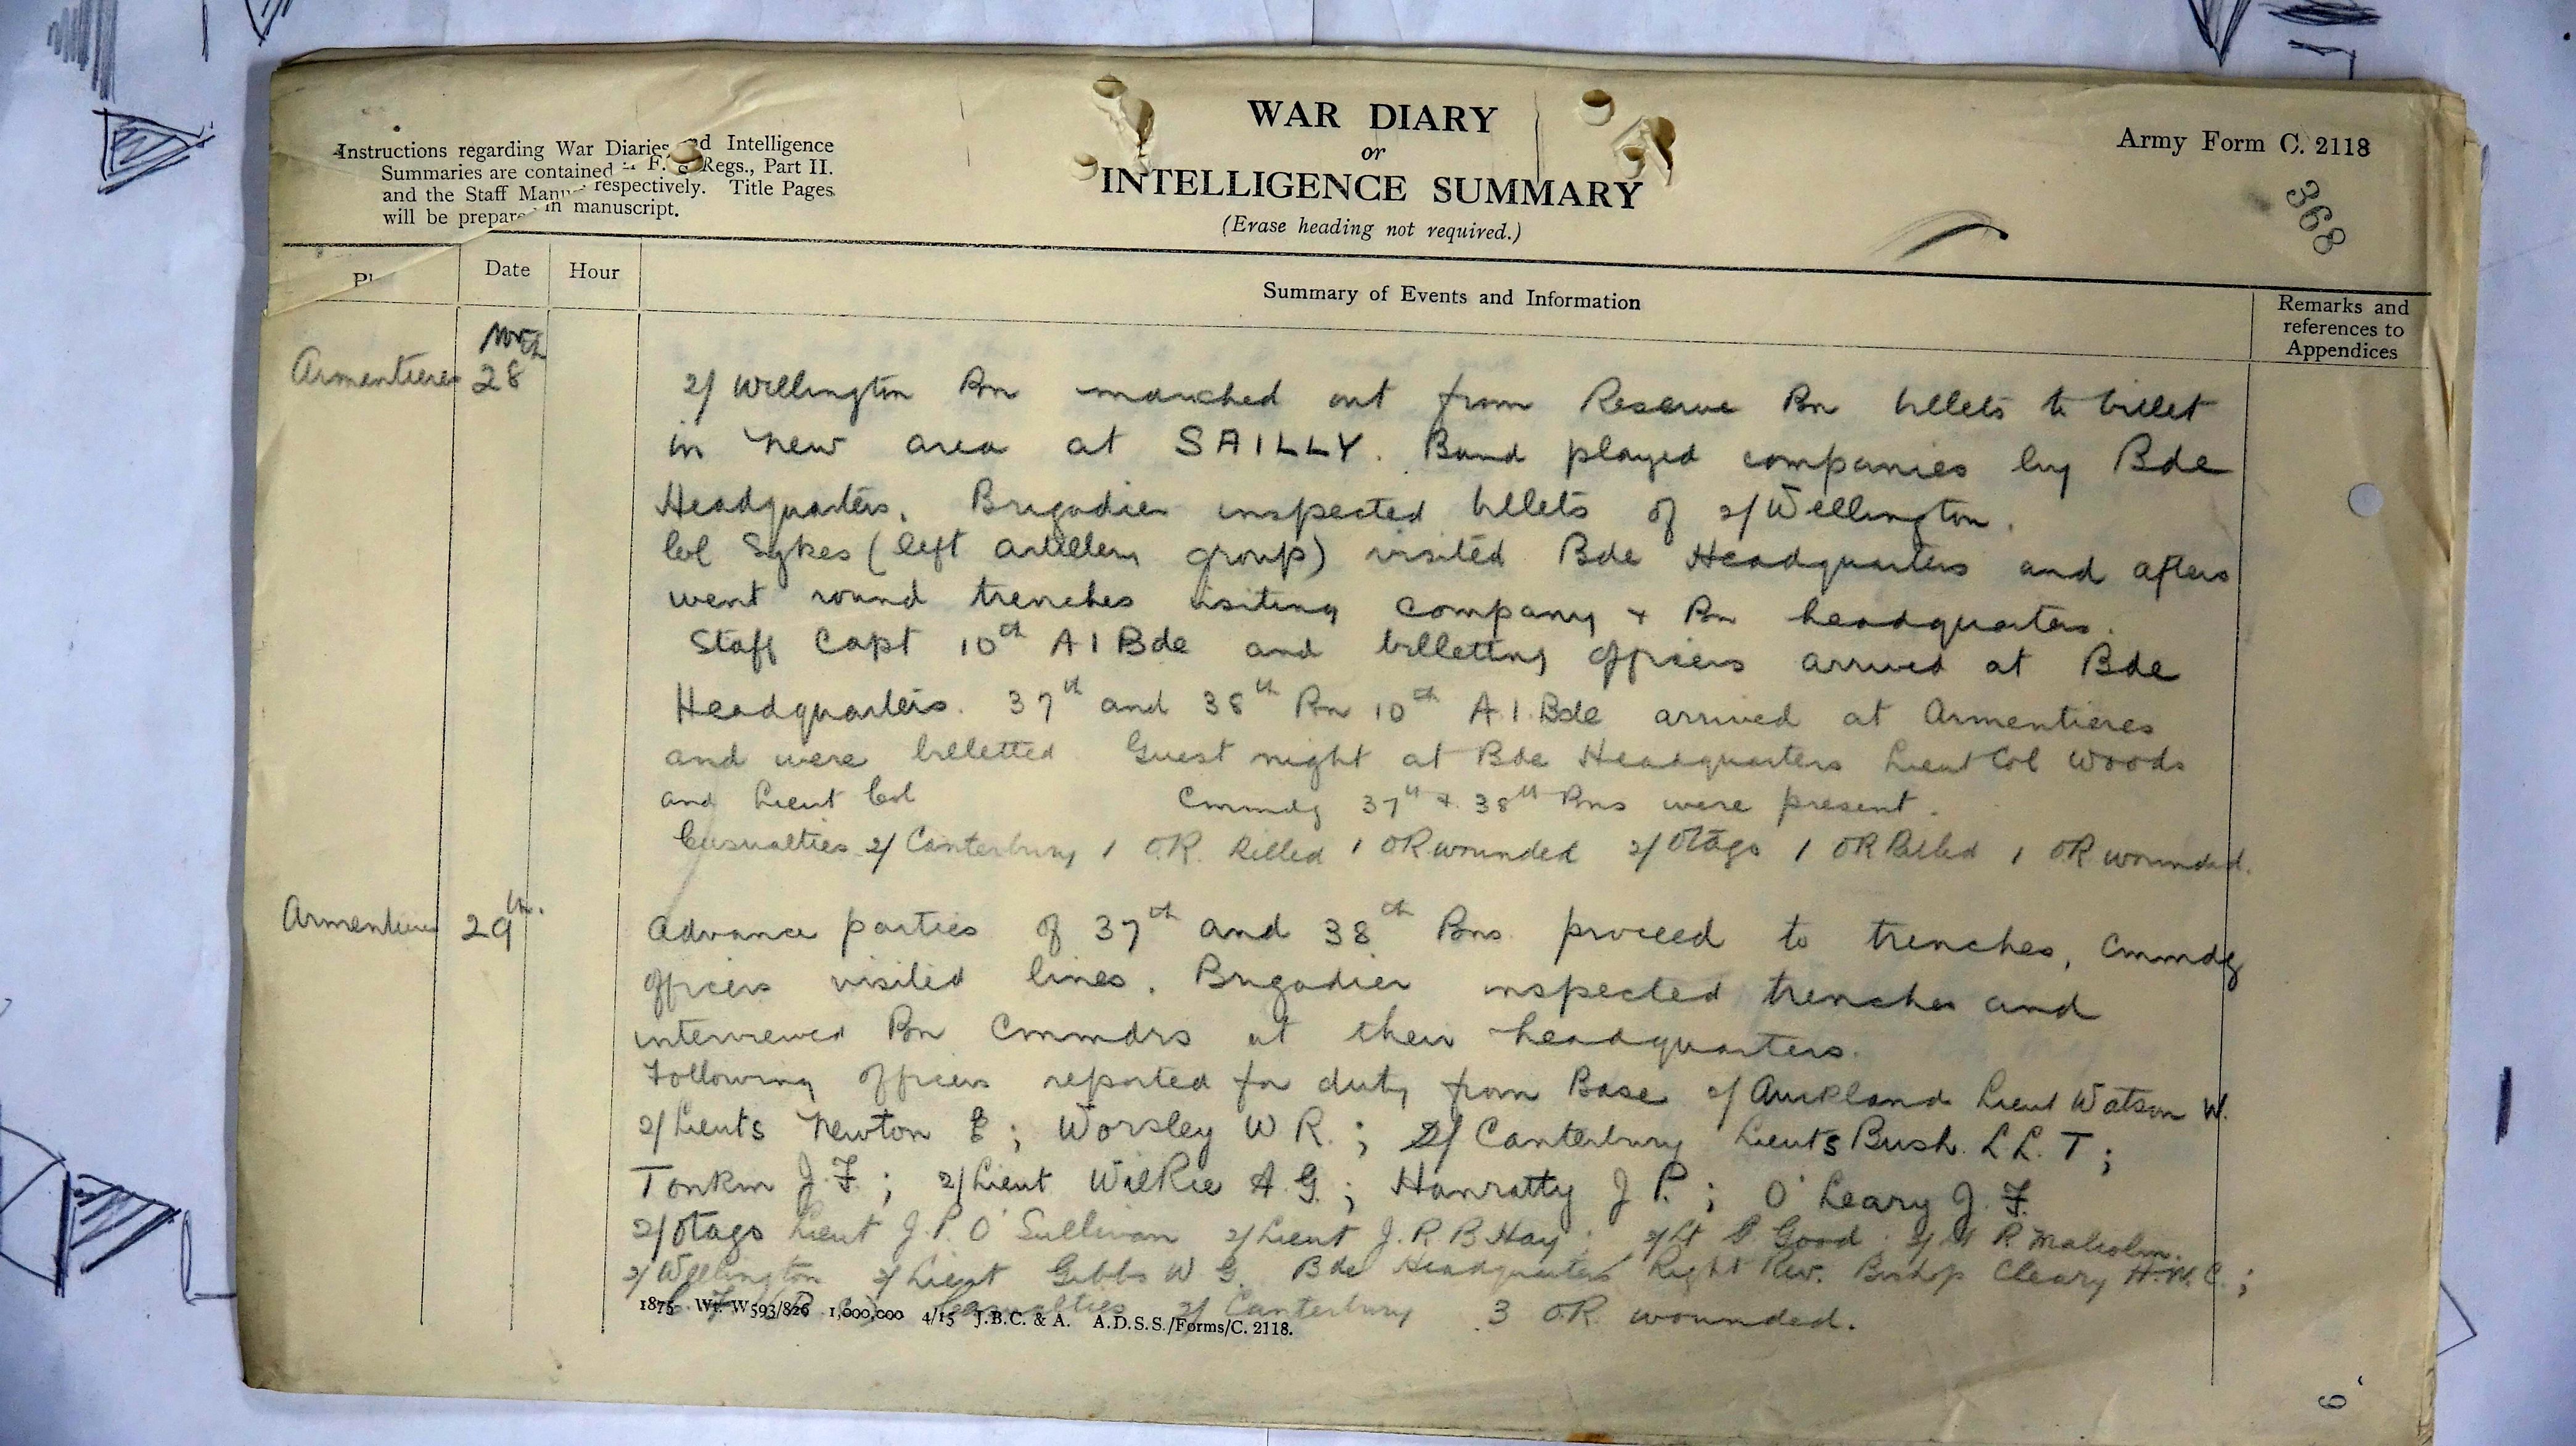 Instructions regarding War Diaries and Intelligence
Summaries are contained in F. S. Regs., Part II.
and the Staff Manual respectively. Title Pages
will be prepared in manuscript.
WAR DIARY
or
INTELLIGENCE SUMMARY
(Erase heading not required.)
Army Form C. 2118
368
Date
Hour
Summary of Events and Information
Remarks and
references to
Appendices
Armentieres 28th
2/ Wellington Bn marched out from Reserve Bn billets to billet
in new area at SAILLY. Band played companies by Bde
Headquarters. Brigadier inspected billets of 2/Wellington.
Col Sykes (left artillery group) visited Bde Headquarters and afters
went round trenches visiting company + Bn headquarters.
Staff Capt 10th A I Bde and billeting officers arrived at Bde
Headquarters. 37th and 38th Bn 10th A.I. Bde arrived at Armentieres
and were billetted Guest night at Bde Headquarters Lieut Col Woods
and Lieut Col Cmmdg 37th + 38th Bns were present.
Casualties 2/ Canterbury 1 O.R. killed 1 OR wounded 2/ Otago 1 OR killed 1 OR wounded.
Armentieres 29th.
Advance parties of 37th and 38th Bns proceed to trenches, Cmmdg
officers visited lines. Brigadier inspected trenches and
interviewed Bn Cmmdrs at their headquarters.
Following officers reported for duty from Base 2/ Auckland Lieut Watson W.
2/Lieuts Newton E; Worsley W R.; 2/ Canterbury Lieuts Bush. L L. T;
Tonkin J. F; 2/Lieut Wilkie A. G.; Hanratty J P.; O'Leary J. F.
2/Otago Lieut J. P. O'Sullivan 2/Lieut J. R. B Hay; 2/Lt Good; R Malcolm.
2/ Wellington 2/Lieut Gibbs W G. Bde Headquarters Right Rev. Bishop Cleary H. W. C.;
Casualties 2/ Canterbury 3 O.R. wounded.
1875 Wt. W593/826 1,000,000 4/15 J.B.C. & A. A.D.S.S./Forms/C. 2118.